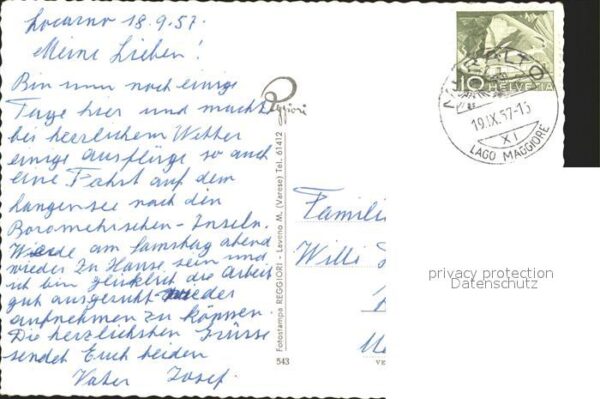 Locarno 18.9.57.
Meine Lieben!
Bin nun noch einige
Tage hier und mache
bei herzlichem Wetter
einige Ausflüge so auch
eine Fahrt auf dem
Langensee nach den
Boromehrschen-Inseln.
Werde am Samstag abend
wieder zu Hause sein und
ich bin glücklich die Arbeit
gut ausgeruht wieder
aufnehmen zu können.
Die herzlichsten Grüsse
sendet Euch beiden
Vater Josef.
Reggiori
Fotostampa REGGIORI - Laveno M. (Varese) Tel. 61412
543
VE
10 HELVETIA
MURALTO
19.IX.57-13
XI
LAGO MAGGIORE
Famili
Willi
privacy protection
Datenschutz